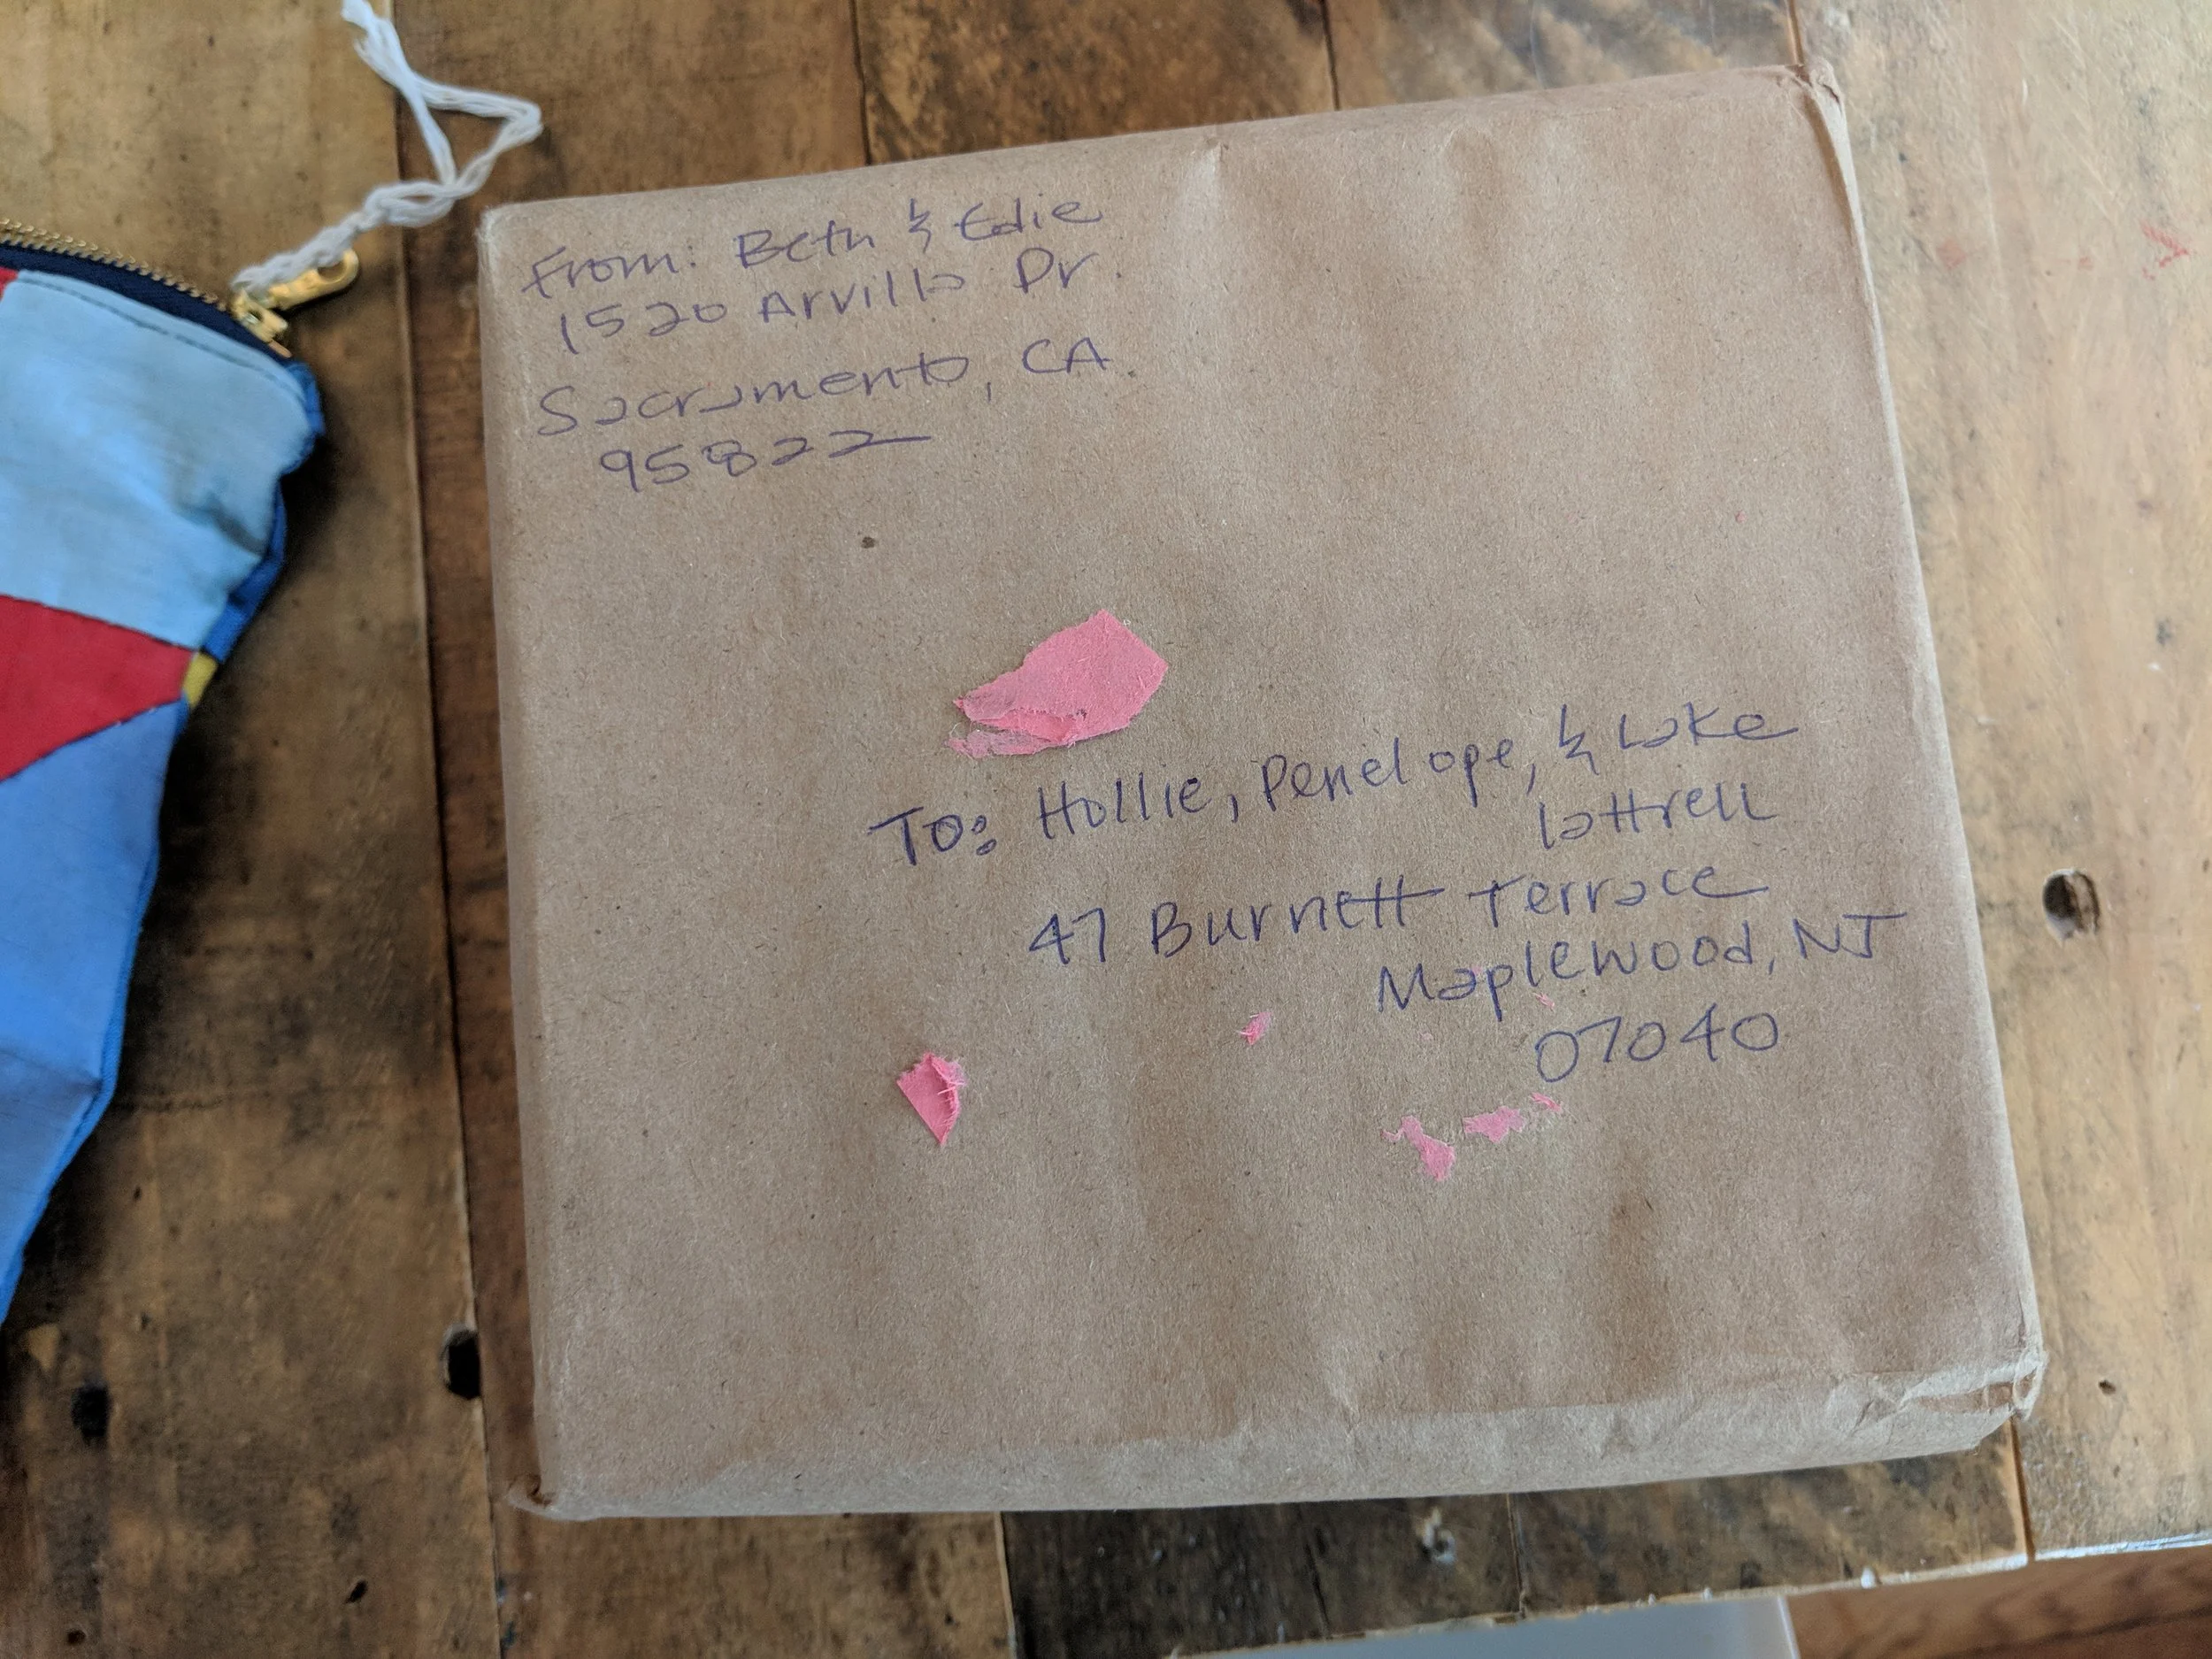 From: Beth & Edie
1520 Arvilla Dr.
Sacramento, CA.
95822
To: Hollie, Penelope, & Lake
Lattrell
47 Burnett Terrace
Maplewood, NJ
07040